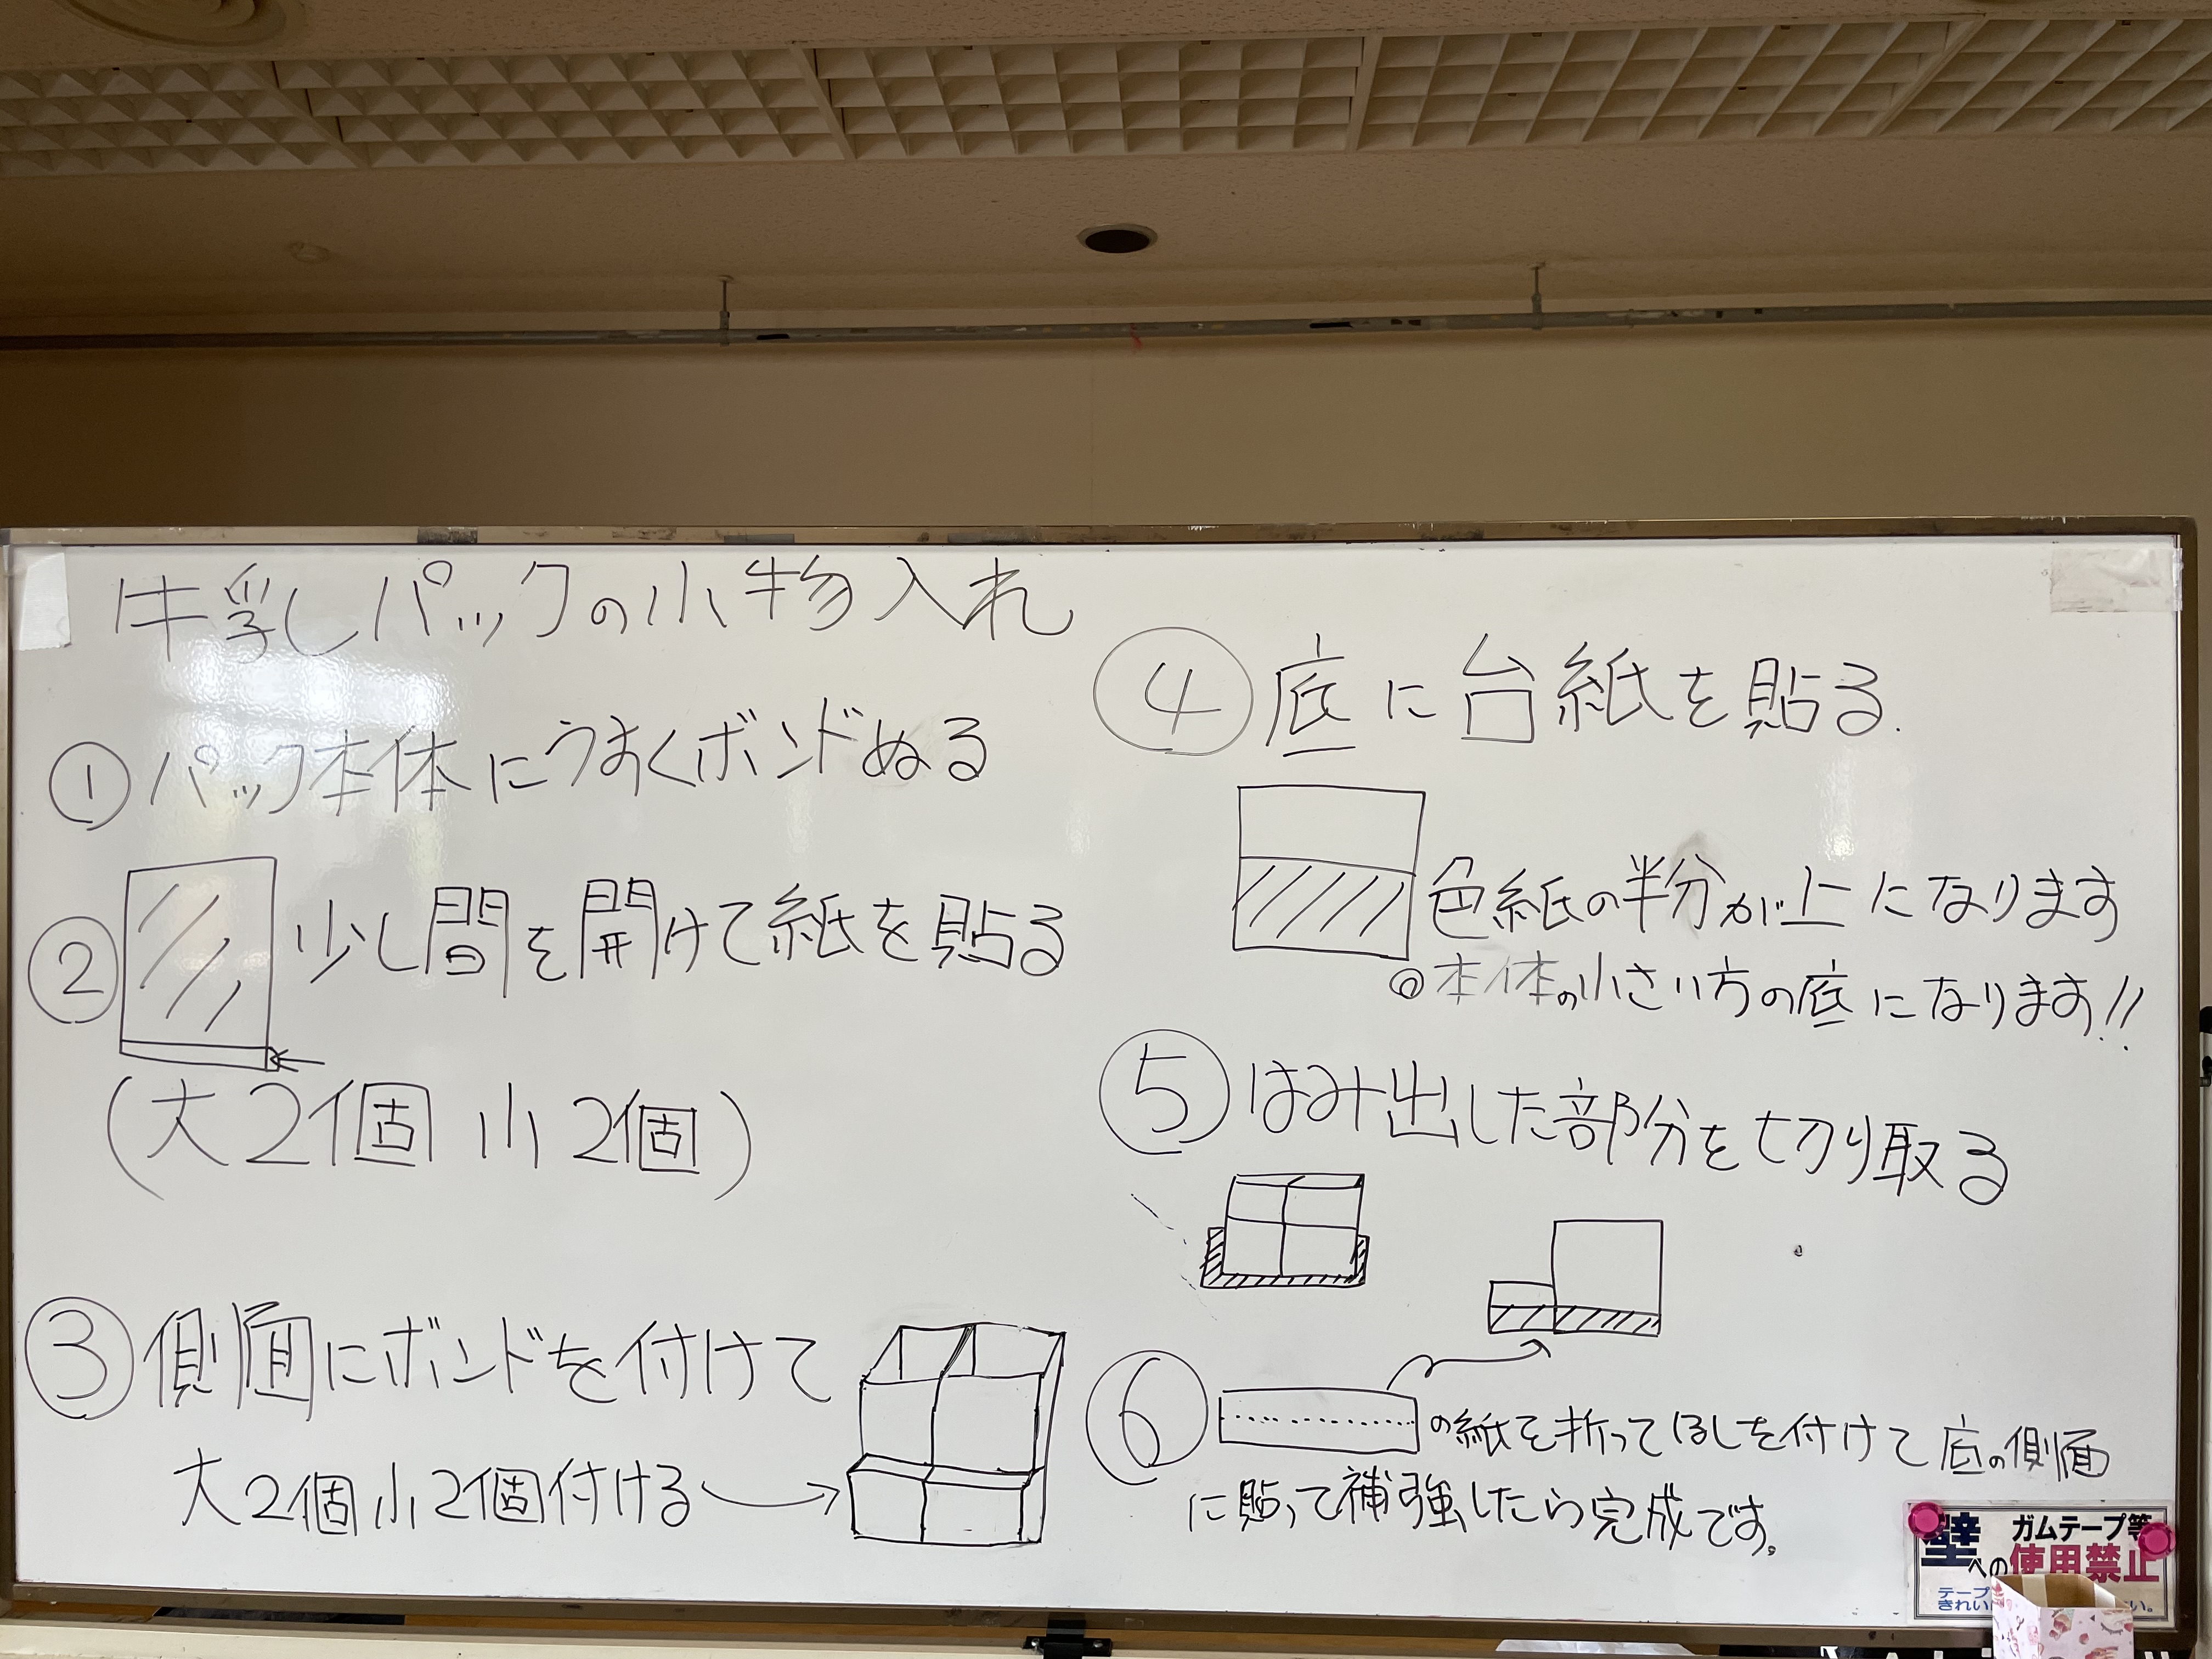 牛乳パックの小物入れ
① パック本体にうすくボンドぬる
② 少し間を開けて紙を貼る
(大2個 小2個)
③ 側面にボンドを付けて
大2個小2個付ける
④ 底に台紙を貼る.
色紙の半分が上になります
◎本体の小さい方の底になります!!
⑤ はみ出した部分を切り取る
⑥ の紙を折って を付けて底の側面
に貼って補強したら完成です。
壁への ガムテープ等
使用禁止
テープ
きれい い。